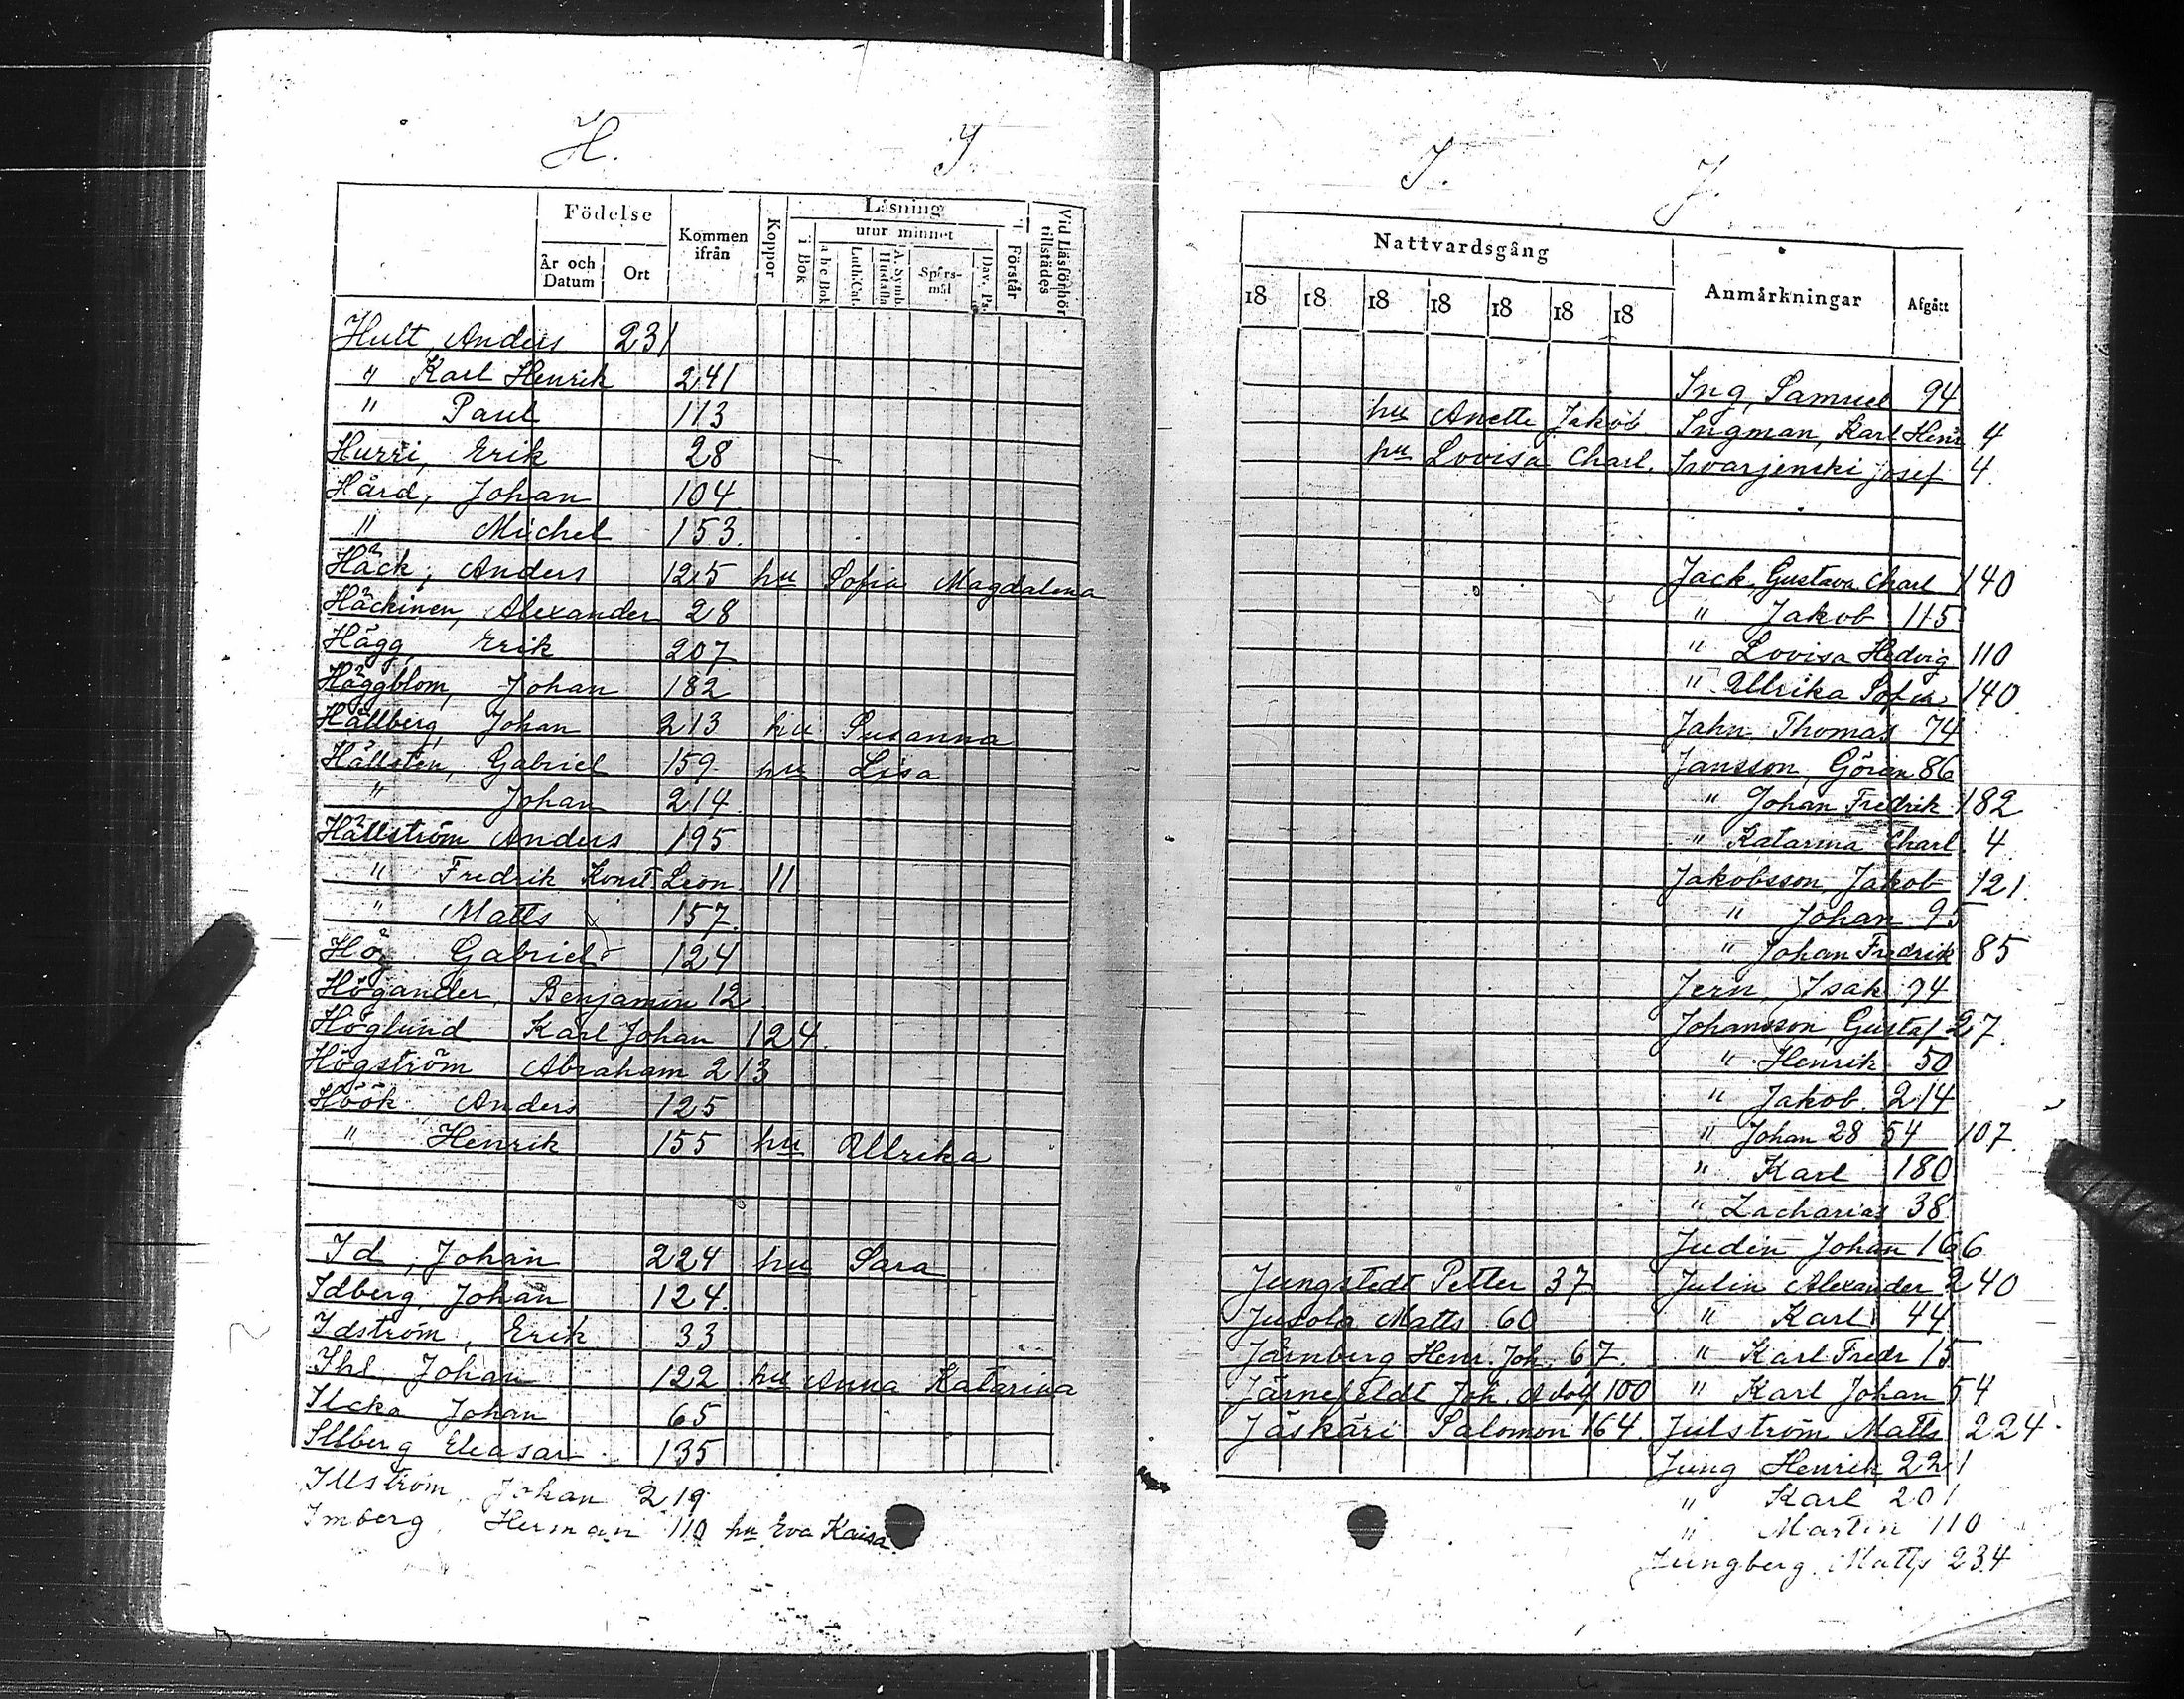 H. I.
Födelse
Kommen ifrån
Koppor
Läsning
utur minnet
i Bok
a b c Bok
Luth. Cat.
A. Symb. Hustafla
Spörs-mål
Dav. Ps.
Förstår
Vid Läsförhör tillstädes
År och Datum
Ort
Hult, Anders 231
" Karl Henrik 241
" Paul 113
Hurri, Erik 28
Hård, Johan 104
" Michel 153.
Häck, Anders 125 hu Sofia Magdalena
Häckinen, Alexander 28
Hägg, Erik 207
Häggblom, Johan 182
Hällberg, Johan 213 hu Susanna
Hällsten, Gabriel 159 hu Lisa
" Johan 214
Hällström Anders 195
" Fredrik Konst. Leon. 11
" Matts 157.
Hög Gabriel 124
Högander, Benjamin 12
Höglund Karl Johan 124.
Högström Abraham 213
Höök Anders 125
" Henrik 155 hu Ullrika
Id, Johan 224 hu Sara
Idberg, Johan 124.
Idström, Erik 33
Ihl, Johan 122 hu Anna Katarina
Ilcka Johan 65
Illberg Eleasar 135
Illström, Johan 219
Imberg, Herman 110 hu Eva Kaisa
I. J.
Nattvardsgång
Anmärkningar
Afgått
18 18 18 18 18 18 18
Ing, Samuel 94
hu Anette Jakob. Ingman, Karl Henr 4
hu Lovisa Charl. Iwarjenski Josef 4.
Jack, Gustava Charl 140
" Jakob 115
" Lovisa Hedvig 110
" Ullrika Sofia 140.
Jahn Thomas 74
Jansson, Göran 86
" Johan Fredrik 182
" Katarina Charl. 4
Jakobsson, Jakob 121.
" Johan 95
" Johan Fredrik 85
Jern Isak 94
Johansson, Gustaf 27.
" Henrik 50
" Jakob. 214
" Johan 28 54 107.
" Karl 180
" Zacharias 38.
Judin Johan 166
Jungstedt Petter 37 Julin Alexander 240
Jusola Matts 60 " Karl 44
Järnberg Henr. Joh. 67. " Karl Fredr 15
Järnefeldt Joh. Adolf 100 " Karl Johan 54
Jäskäri Salomon 164. Julström Matts 224.
Jung Henrik 221
" Karl 201
" Martin 110
Jungberg. Matts 234